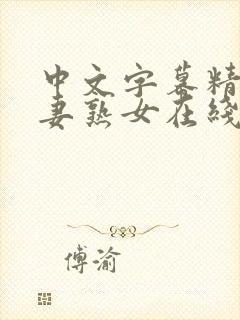 中文字幕精
妻熟女在线
傅渝